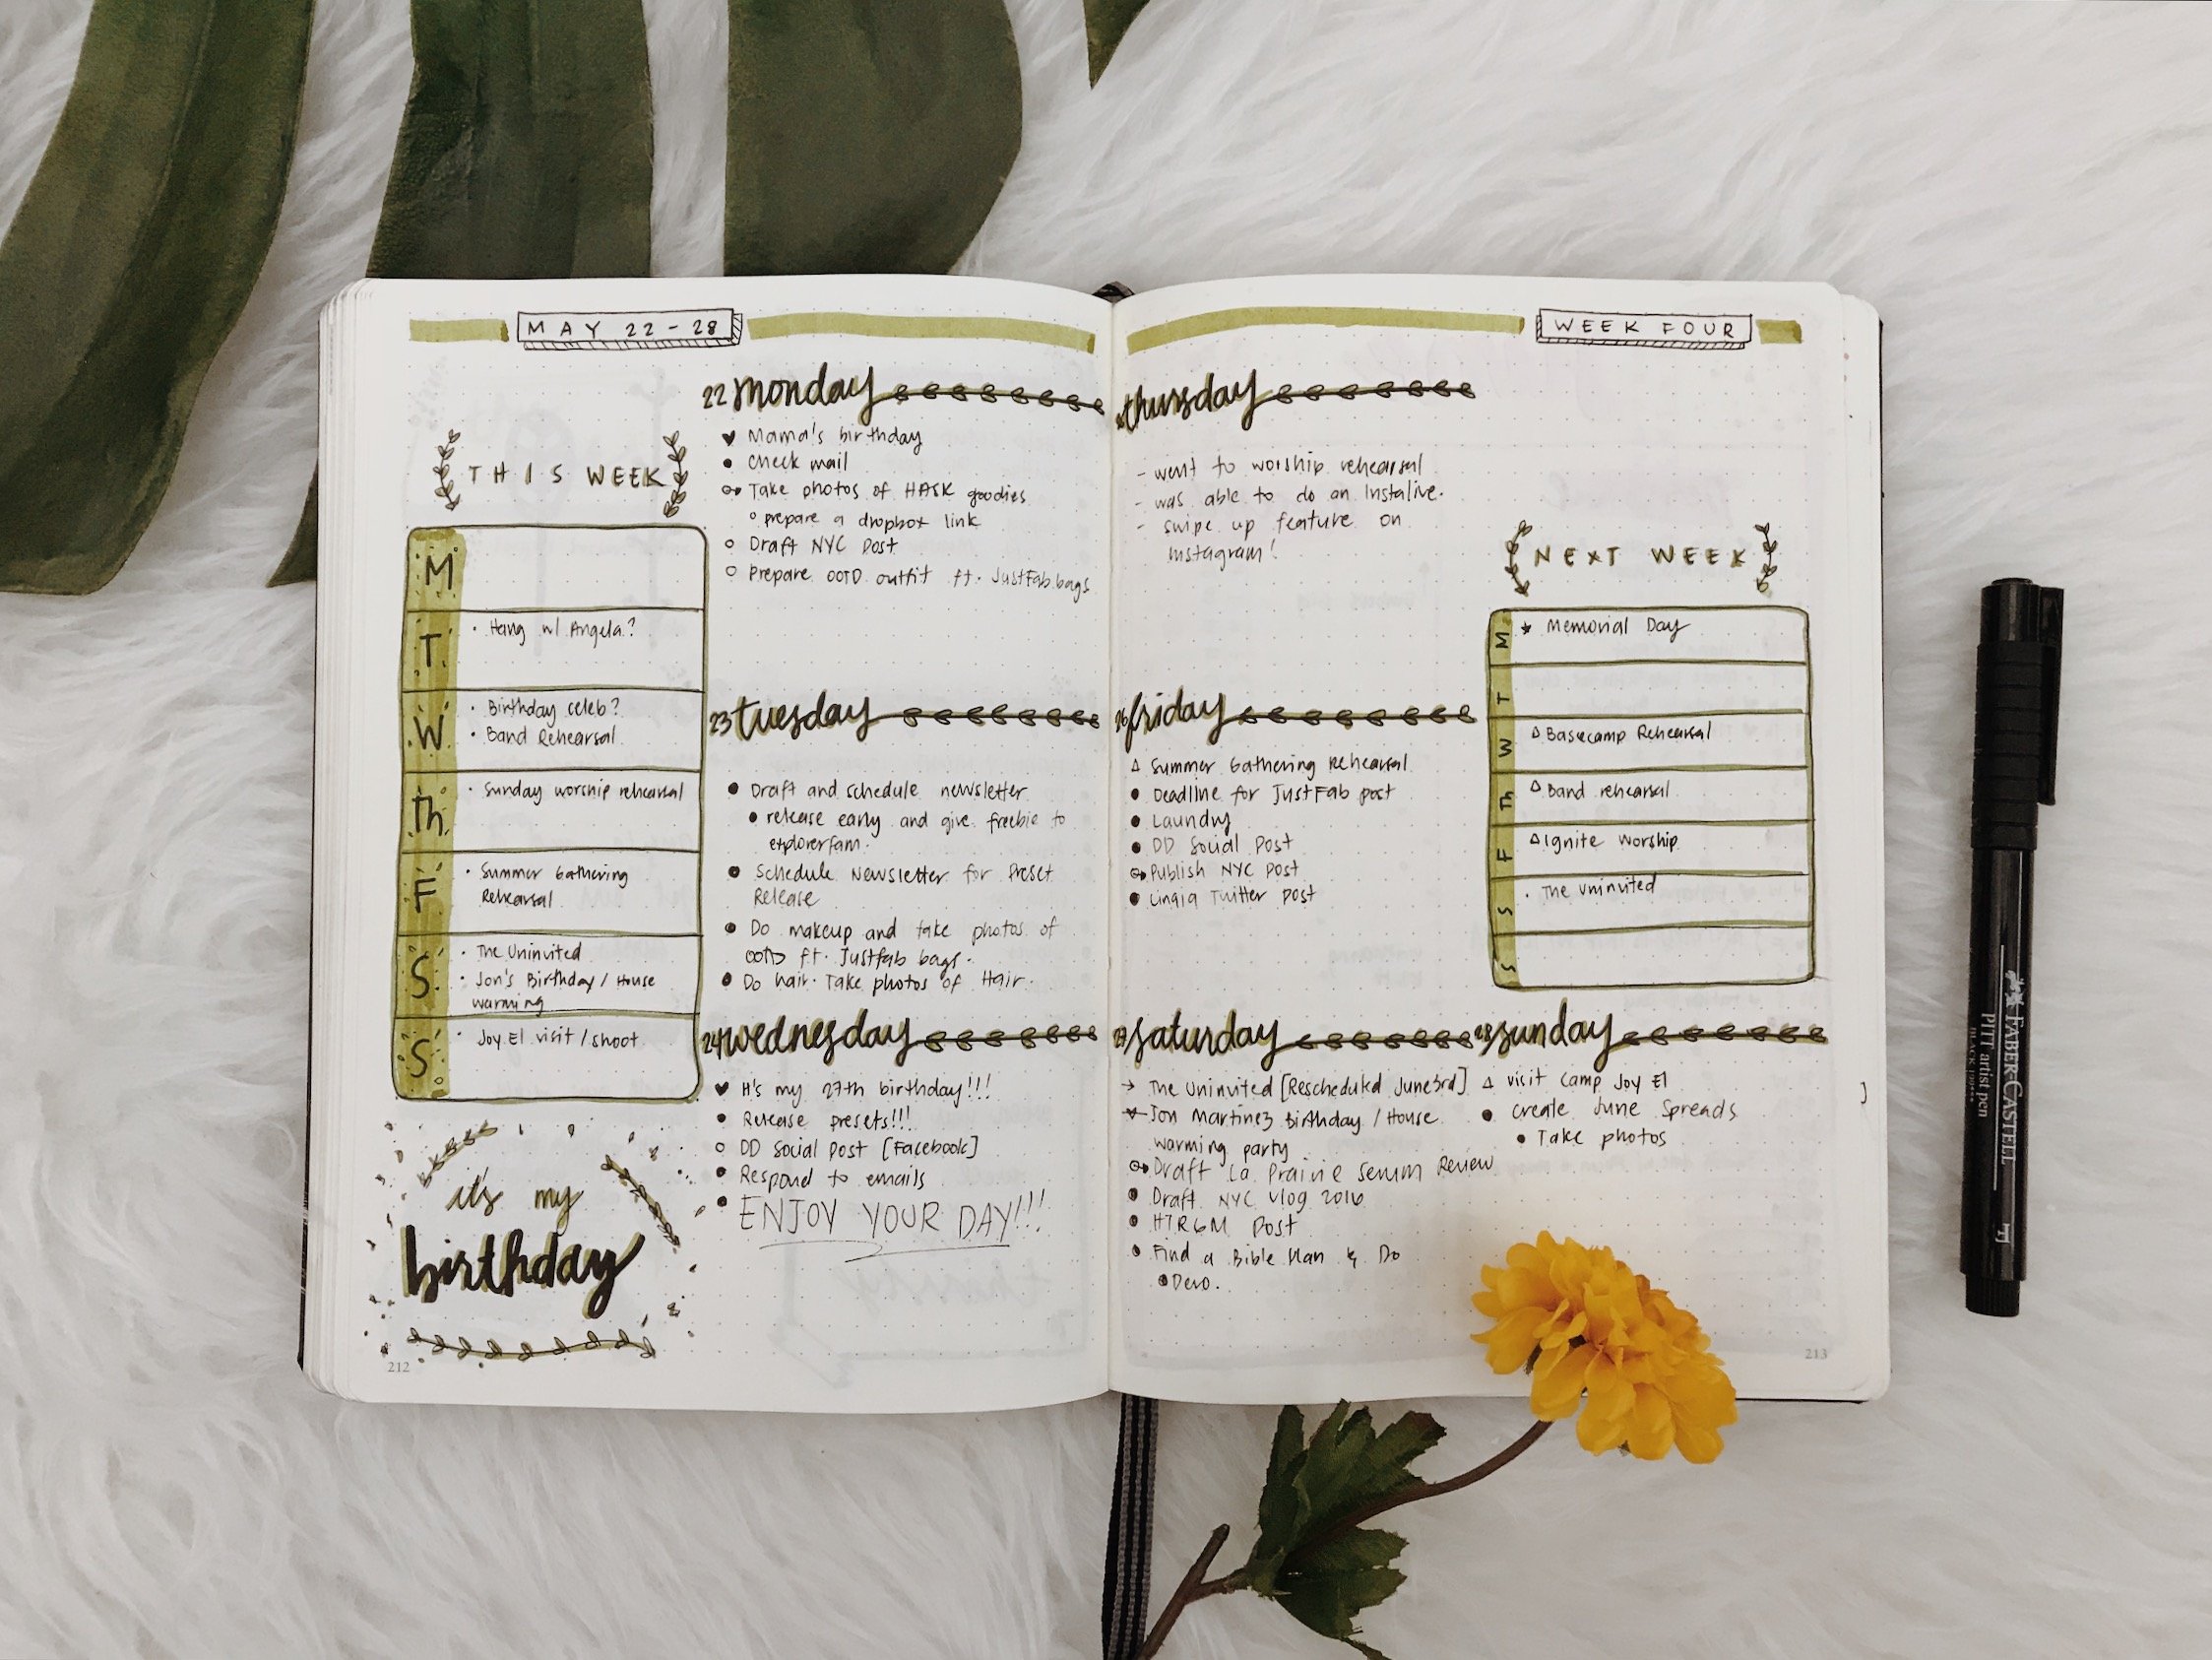 MAY 22-28
THIS WEEK
M
T
· Hang w/ Angela?
W
· Birthday celeb?
· Band Rehearsal
Th
· Sunday worship rehearsal
F
· Summer Gathering
Rehearsal
S
· The Uninvited
· Jon's Birthday / House
warming
S
· Joy El visit / shoot
it's my
birthday
212
22 monday
♥ Mama's birthday
● Check mail
Take photos of HASK goodies
○ prepare a dropbox link
○ Draft NYC Post
○ Prepare OOTD outfit ft. JustFab bags
23 tuesday
● Draft and schedule newsletter
● release early and give freebie to
explorerfam.
● Schedule Newsletter for Preset
Release
● Do makeup and take photos of
OOTD ft. Justfab bags.
● Do hair. Take photos of Hair.
24 wednesday
♥ It's my 27th birthday!!!
● Release presets!!!
○ DD Social Post [Facebook]
● Respond to emails
● ENJOY YOUR DAY!!!
WEEK FOUR
thursday
- went to worship rehearsal
- was able to do an Instalive.
- swipe up feature on
Instagram!
26 friday
△ Summer Gathering Rehearsal
● Deadline for JustFab post
● Laundry
● DD Social Post
Publish NYC Post
● Linqia Twitter post
NEXT WEEK
M
★ Memorial Day
T
W
△ Basecamp Rehearsal
Th
△ Band rehearsal
F
△ Ignite Worship
S
· The Uninvited
S
27 saturday
→ The Uninvited [Rescheduled June 3rd]
Jon Martinez Birthday / House
warming party
Draft La Prairie Serum Review
● Draft NYC Vlog 2016
● HTRGM Post
● Find a Bible Plan & Do
● Devo.
28 sunday
△ visit Camp Joy El
● Create June Spreads
● Take photos
213
FABER-CASTELL
PITT artist pen
F